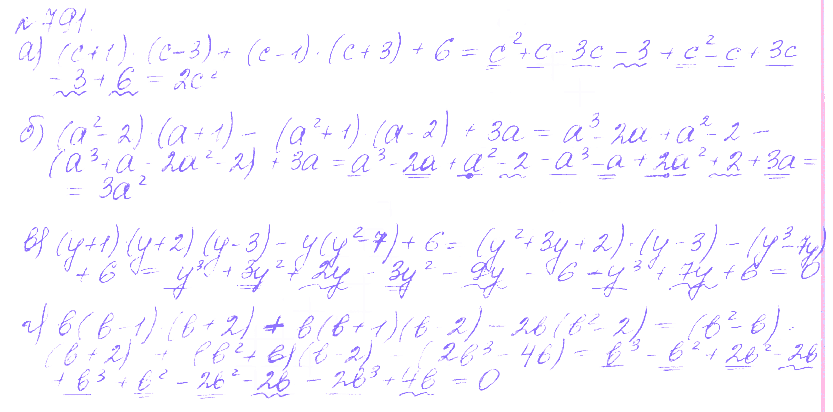 № 791.
а) (c+1)·(c-3)+(c-1)·(c+3)+6 = c²+c-3c-3+c²-c+3c
-3+6 = 2c²
б) (a²-2)(a+1)-(a²+1)(a-2)+3a = a³-2a+a²-2-
(a³+a-2a²-2)+3a = a³-2a+a²-2-a³-a+2a²+2+3a =
= 3a²
в) (y+1)(y+2)(y-3)-y(y²-7)+6 = (y²+3y+2)·(y-3)-(y³-7y)
+6 = y³+3y²+2y-3y²-9y-6-y³+7y+6=0
г) в(в-1)·(в+2)+в(в+1)(в-2)-2в(в²-2) = (в²-в)·
(в+2)+(в²+в)(в-2)-(2в³-4в) = в³-в²+2в²-2в
+в³+в²-2в²-2в-2в³+4в=0